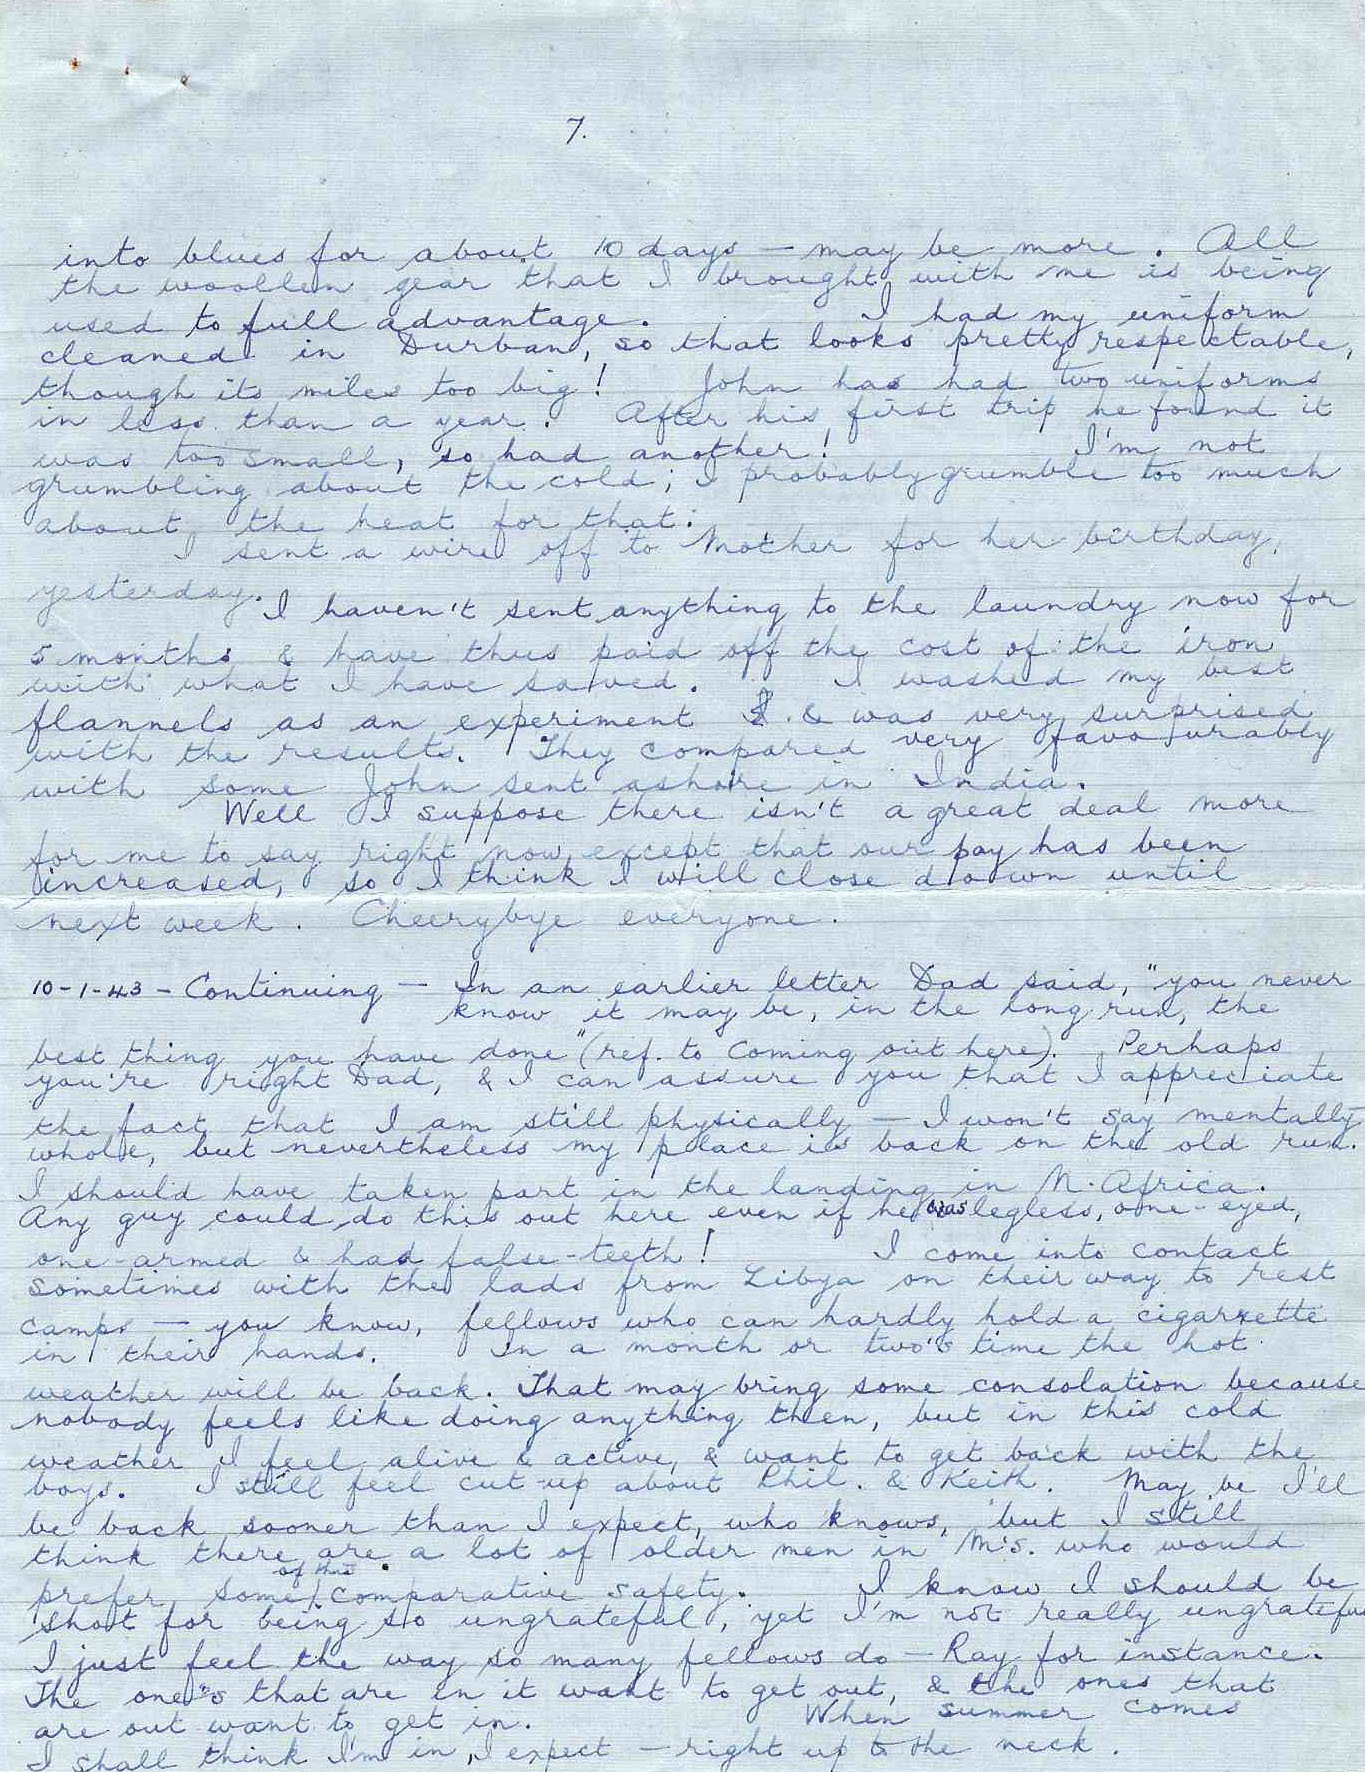 7.
into blues for about 10 days — may be more. All
the woollen gear that I brought with me is being
used to full advantage. I had my uniform
cleaned in Durban, so that looks pretty respectable,
though its miles too big! John has had two uniforms
in less than a year. After his first trip he found it
was too small, so had another! I'm not
grumbling about the cold; I probably grumble too much
about the heat for that.
I sent a wire off to Mother for her birthday,
yesterday.
I haven't sent anything to the laundry now for
5 months & have thus paid off the cost of the iron
with what I have saved. I washed my best
flannels as an experiment & was very surprised
with the results. They compared very favourably
with some John sent ashore in India.
Well I suppose there isn't a great deal more
for me to say right now, except that our pay has been
increased, so I think I will close down until
next week. Cheerybye everyone.
10-1-43 - Continuing — In an earlier letter Dad said, "you never
know it may be, in the long run, the
best thing you have done" (ref. to coming out here). Perhaps
you're right Dad, & I can assure you that I appreciate
the fact that I am still physically — I won't say mentally
whole, but nevertheless my place is back on the old run.
I should have taken part in the landing in N. Africa.
Any guy could do this out here even if he was legless, one-eyed,
one-armed & had false-teeth! I come into contact
sometimes with the lads from Libya on their way to rest
camps — you know, fellows who can hardly hold a cigarette
in their hands. In a month or two's time the hot
weather will be back. That may bring some consolation because
nobody feels like doing anything then, but in this cold
weather I feel alive & active, & want to get back with the
boys. I still feel cut-up about Phil. & Keith. May be I'll
be back sooner than I expect, who knows, but I still
think there are a lot of older men in M.S. who would
prefer some of this comparative safety. I know I should be
shot for being so ungrateful, yet I'm not really ungrateful
I just feel the way so many fellows do — Ray for instance.
The one's that are in it want to get out, & the ones that
are out want to get in. When summer comes
I shall think I'm in, I expect — right up to the neck.